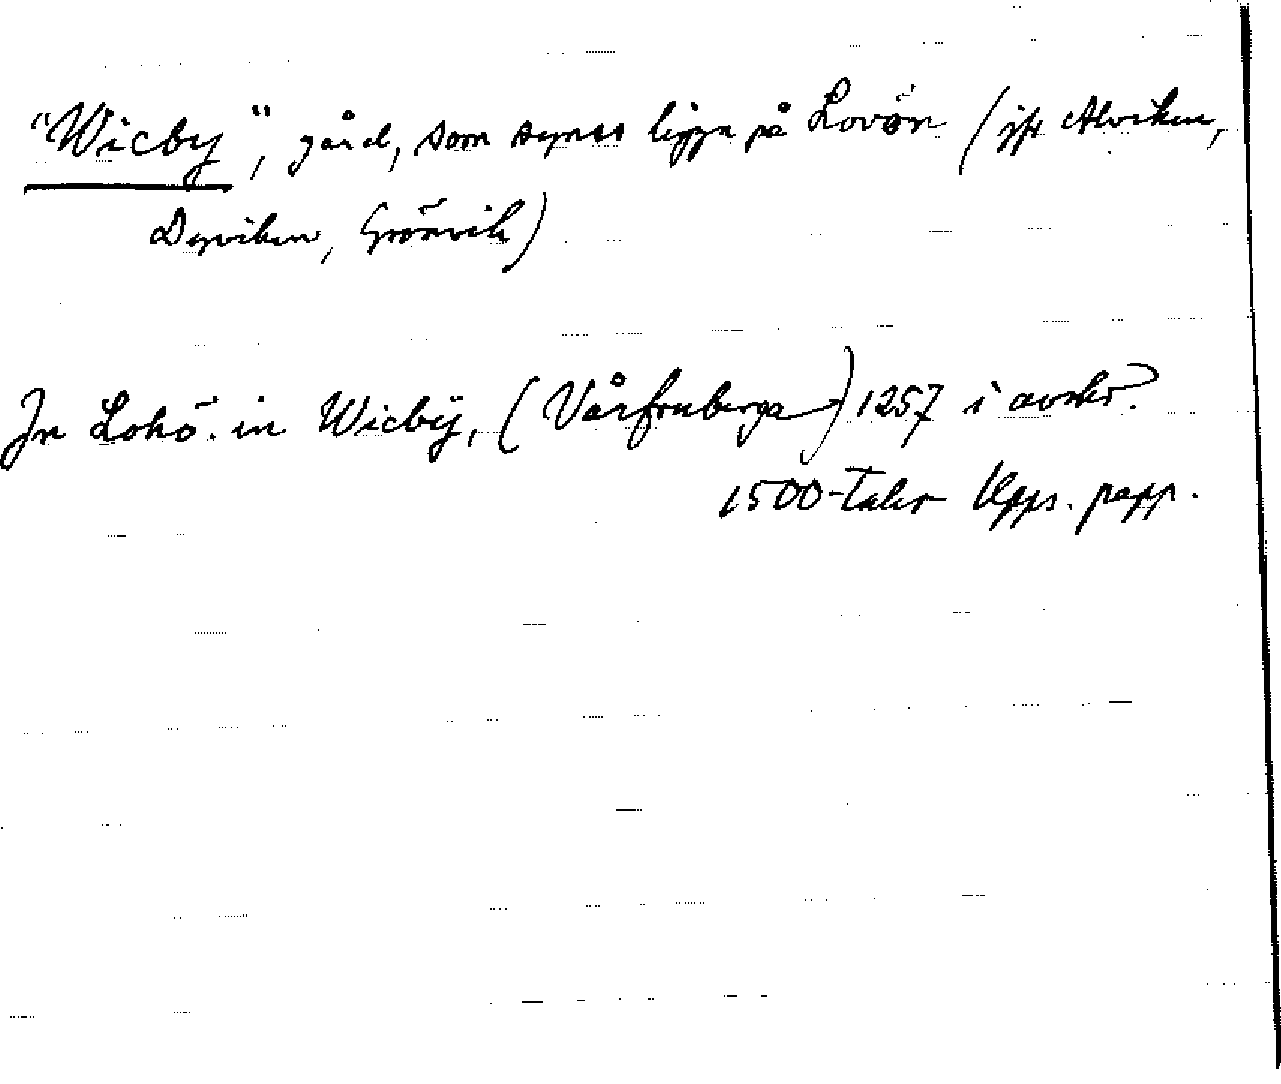 "Wicby", gård, som synes ligga på Lovön (jfr Alviken,
Dyviken, Grönvik)
In Lohö. in Wicbÿ, (Vårfruberga) 1257 i avskr.
1500-talet Upps. papp.